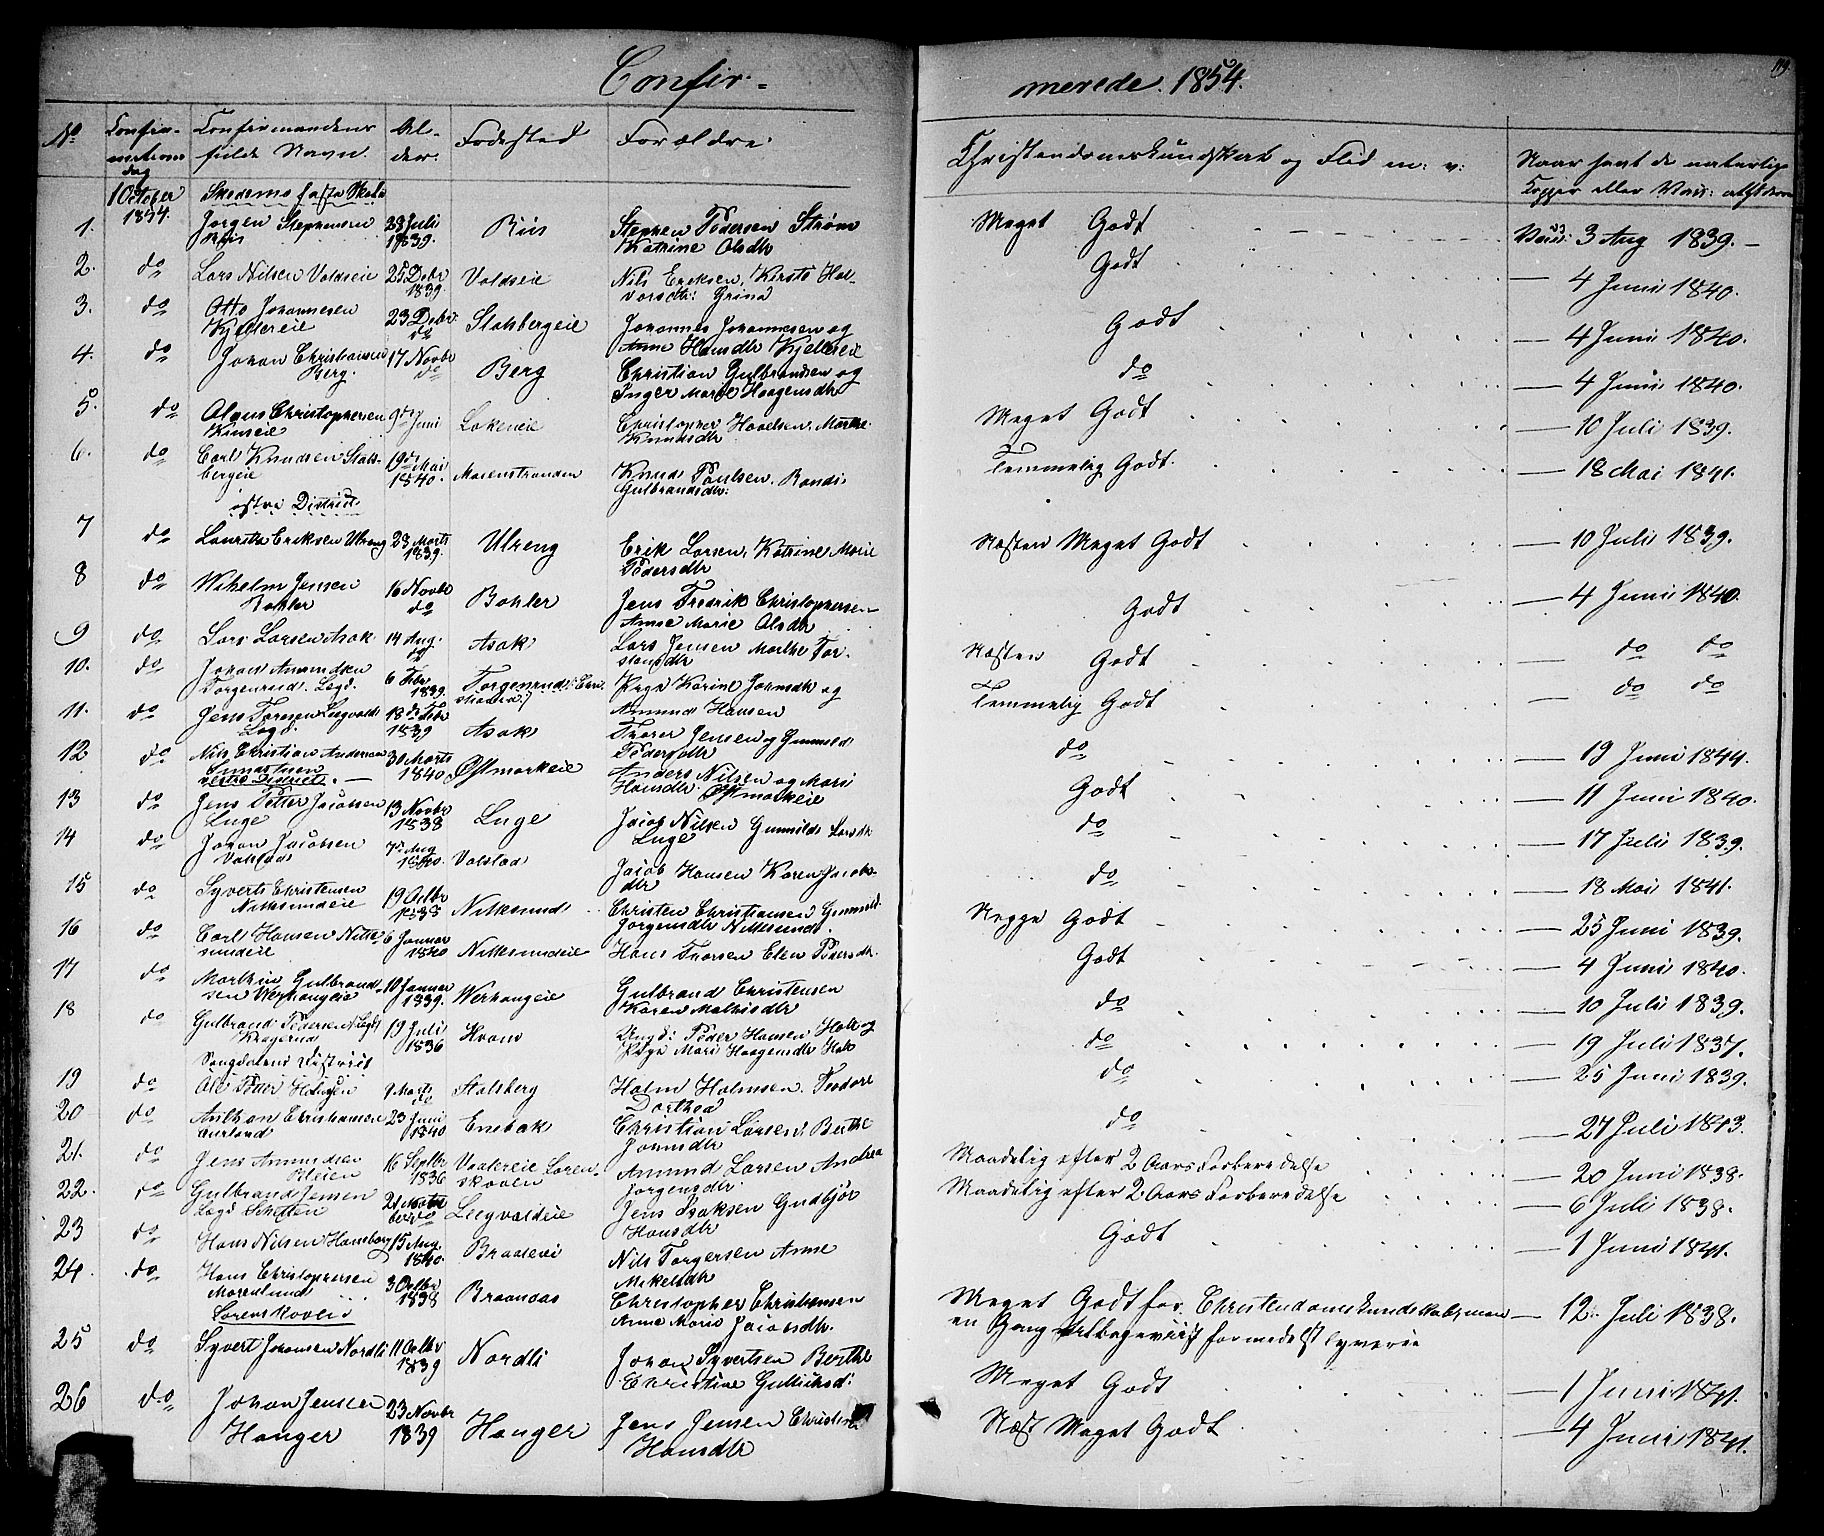 Confir- merede. 1854.
119.
No Confir- Confirmandens Al- Fødested Forældre. Christendomskundskab og Flid m: v: Naar havt de naturlige
mations fulde Navn. der. Kopper eller Vacc:
dag
1 October Skedsmo faste Skole
1854.
1. Jørgen Stephensen 28 Juli Riis Stephen Pedersen Strøm Meget Godt Vacc: 3 Aug 1839.
Riis 1839. Katrine Olsdtr
2. do Lars Nilsen Valdseie 25 Debr Valdseie Nils Eriksen, Kersti Hal- Godt — 4 Juni 1840.
1839. vorsdtr: Grina
3. do Otto Johannesen 23 Debr. Stalsbergeie Johannes Johannesen og Godt — 4 Juni 1840.
Kjellereie do Anne Hansdtr Kjellereie
4. do Johan Christiansen 17 Novbr Berg Christian Gulbrandsen og do — 4 Juni 1840.
Berg. do Inger Marie Haagensdtr
5. do Olaus Christophersen 9de Juni Lokeneie Christopher Hovelsen, Marthe Meget Godt — 10 Juli 1839.
Knudsdtr
6. do Carl Knudsen Stals- 19de Mai Knud Paulsen. Randi Temmelig Godt. — 18 Mai 1841.
bergeie 1840. Gulbrandsdtr:
østre District
7 do Lauritz Eriksen Ulreng 23 Marts Ulreng Erik Larsen, Katrine Marie Næsten Meget Godt — 10 Juli 1839.
1839. Pedersdtr
8 do Wilhelm Jensen 16 Novbr Bøhler Jens Fredrik Christophersen Godt — 4 Juni 1840.
Bøhler do Anne Marie Olsdtr
9 do Lars Larsen Asak 14 Aug. Asak Lars Jensen Marthe Tor- Næsten Godt — do do
do stensdtr
10. do Johan Amundsen 6 Febr Torgenrud Pige Karine Johnsdtr og Temmelig Godt — do do
Torgenrud. Legd. 1839. Amund Hansen
11. do Jens Toresen Leegvold 18de Febr Asak Thorer Jensen og Gunnild do — 19 Juni 1844.
Legd. 1839 Pedersdtr
12 do Nils Christian Andersen 30 Marts Østmarkeie Anders Nilsen og Mari Godt — 11 Juni 1840.
1840 Hansdtr. Østmarkeie
vestre District. —
13 do Jens Petter Jacobsen 13 Novbr Luge Jacob Nilsen Gunnild Larsdtr do — 17 Juli 1839.
Luge 1838 Luge
14 do Johan Jacobsen 7de Aug Valstad Jacob Hansen Karen Jacobs- do — 18 Mai 1841.
Valstad 1840. dtr
15 do Syvert Christensen 19 Octbr Nitksund Christen Christiansen Gunnild Begge Godt — 25 Juni 1839.
Nitksundeie 1838 Jørgensdtr Nitksund.
16 do Carl Hansen Nitk- 6 Januar Nitksundeie Hans Thorsen Elen Pedersdtr. Godt — 4 Juni 1840.
sundeie 1840
17 do Marthin Gulbrand- 10 Januar Werhaugeie Gulbrand Christensen do — 10 Juli 1839.
sen Werhaugeie 1839. Karen Mathisdtr
18 do Gulbrand Pedersen 19 Juli Kvam Ungk: Peder Hansen Holt og do — 19 Juli 1837.
Kragerud 1836 Pige Mari Haagensdtr Holt
Songdalens District
19 do Ole Peder Holmsen 9 Marts Stalsberg Holm Holmsen. Teodore do — 25 Juni 1839.
Dorthea
20 do Anthon Christiansen 23 Juni Enebak Christian Larsen, Berthe do — 27 Juli 1843.
Aurland 1840 Johnsdtr
21. do Jens Amundsen 16 Septbr Vaalereie Loren- Amund Larsen Andrea Maadelig efter 2 Aars Forberedelse — 20 Juni 1838.
1836 skoven Jørgensdtr.
22. do Gulbrand Jensen Leegvoldeie Jens Isaksen Gudbjør Maadelig efter 2 Aars Forberedelse — 6 Juli 1838.
Hansdtr
23 do Hans Nilsen Hansborg 15 Aug. Nils Torgersen Anne Godt — 1 Juni 1841.
1840. Mikelsdtr
24. do Hans Christophersen 3 Octbr Braanaas Christopher Christiansen Meget Godt for Christendomskundskab, men — 12. Juli 1838.
Morenlund 1838 Anne Marie Jacobsdtr. en Gang tilbageviist formedelst Tyverie
Lorenskoven
25 do Syvert Johansen Nordli 11 Octbr Nordli Johan Syvertsen Berthe Meget Godt — 1 Juni 1841.
1839 Christine Gulliksd:
26 do Johan Jensen 23 Novbr Hauger Jens Jensen Christine Næst Meget Godt — 4 Juni 1841.
Hauger 1839 Hansdtr